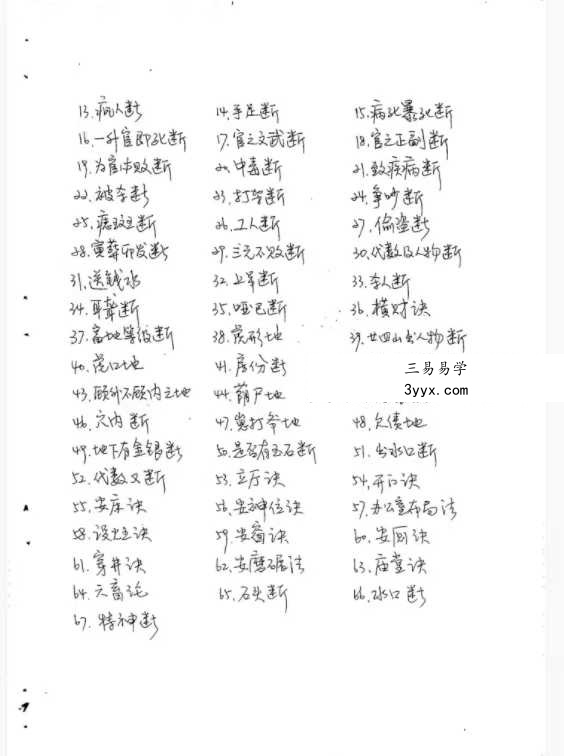 13.病人断 14.手足断 15.病死暴死断
16.一升官即死断 17.官之文武断 18.官之正副断
19.为官中败断 20.中毒断 21.致疾病断
22.被杀断 23.打架断 24.争吵断
25.痣斑断 26.工人断 27.偷盗断
28.寅葬卯发断 29.三元不败断 30.代数及人物断
31.送钱水 32.上吊断 33.杀人断
34.耳聋断 35.哑巴断 36.横财诀
37.富地等级断 38.虎形地 39.廿四山出人物断
40.虎口地 41.房份断
三易易学
43.顾外不顾内之地 44.葫芦地
3yyx.com
46.穴内断 47.崽打爷地 48.欠债地
49.地下有金银断 50.是否有玉石断 51.出水口断
52.代数又断 53.立厅诀 54.开门诀
55.安床诀 56.安神位诀 57.办公室布局法
58.设灶诀 59.安窗诀 60.安厕诀
61.穿井诀 62.安磨碾法 63.庙堂诀
64.六畜论 65.石头断 66.水口断
67.特神断